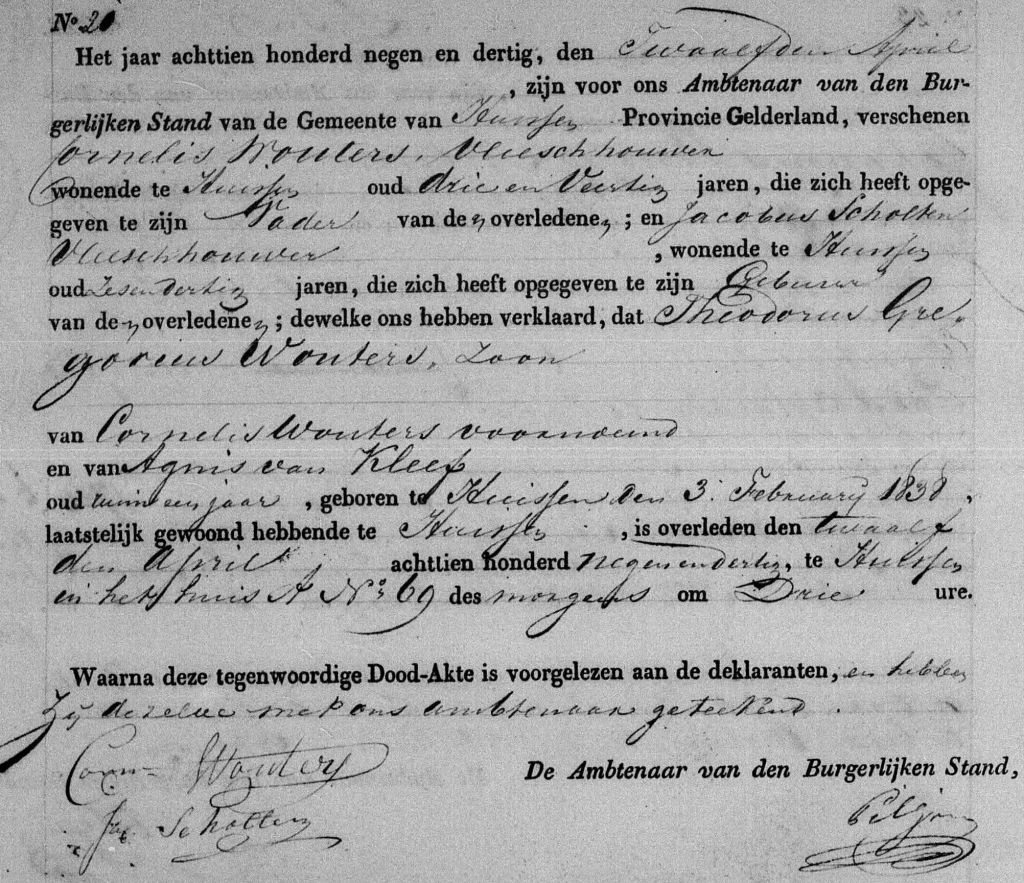 No. 20
Het jaar achttien honderd negen en dertig, den Twaalfden April
, zijn voor ons Ambtenaar van den Bur-
gerlijken Stand van de Gemeente van Huissen Provincie Gelderland, verschenen
Cornelis Wouters, Vleeschhouwer
wonende te Huissen oud drie en Veertig jaren, die zich heeft opge-
geven te zijn Vader van de n overledene n; en Jacobus Scholten
Vleeschhouwer , wonende te Huissen
oud Zesendertig jaren, die zich heeft opgegeven te zijn Gebuur
van de n overledene n; dewelke ons hebben verklaard, dat Theodorus Gre-
gorius Wouters, Zoon
van Cornelis Wouters voornoemd
en van Agnis van Kleef
oud ruim een jaar , geboren te Huissen den 3 February 1838,
laatstelijk gewoond hebbende te Huissen , is overleden den twaalf
den April achttien honderd negenendertig, te Huissen
in het huis A No. 69 des morgens om Drie ure.
Waarna deze tegenwoordige Dood-Akte is voorgelezen aan de deklaranten, en hebben
Zij dezelve met ons ambtenaar geteekend.
Corn Wouters
De Ambtenaar van den Burgerlijken Stand,
Jac Scholten